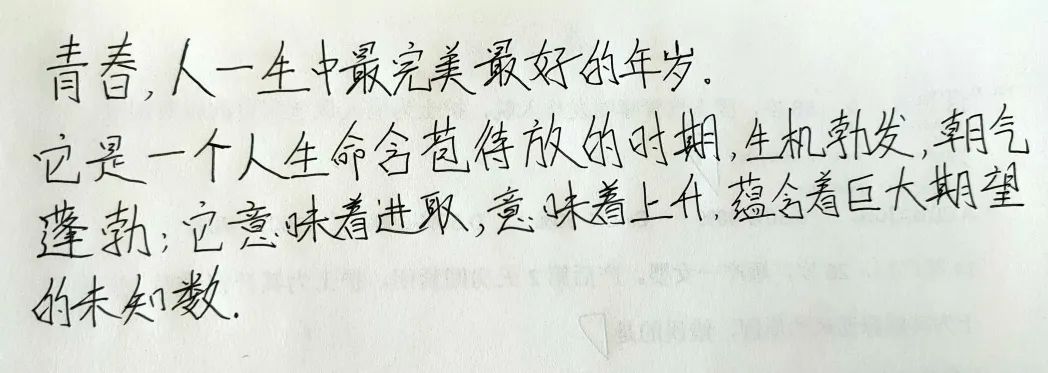 青春,人一生中最完美最好的年岁。
它是一个人生命含苞待放的时期,生机勃发,朝气
蓬勃;它意味着进取,意味着上升 蕴含着巨大期望
的未知数.